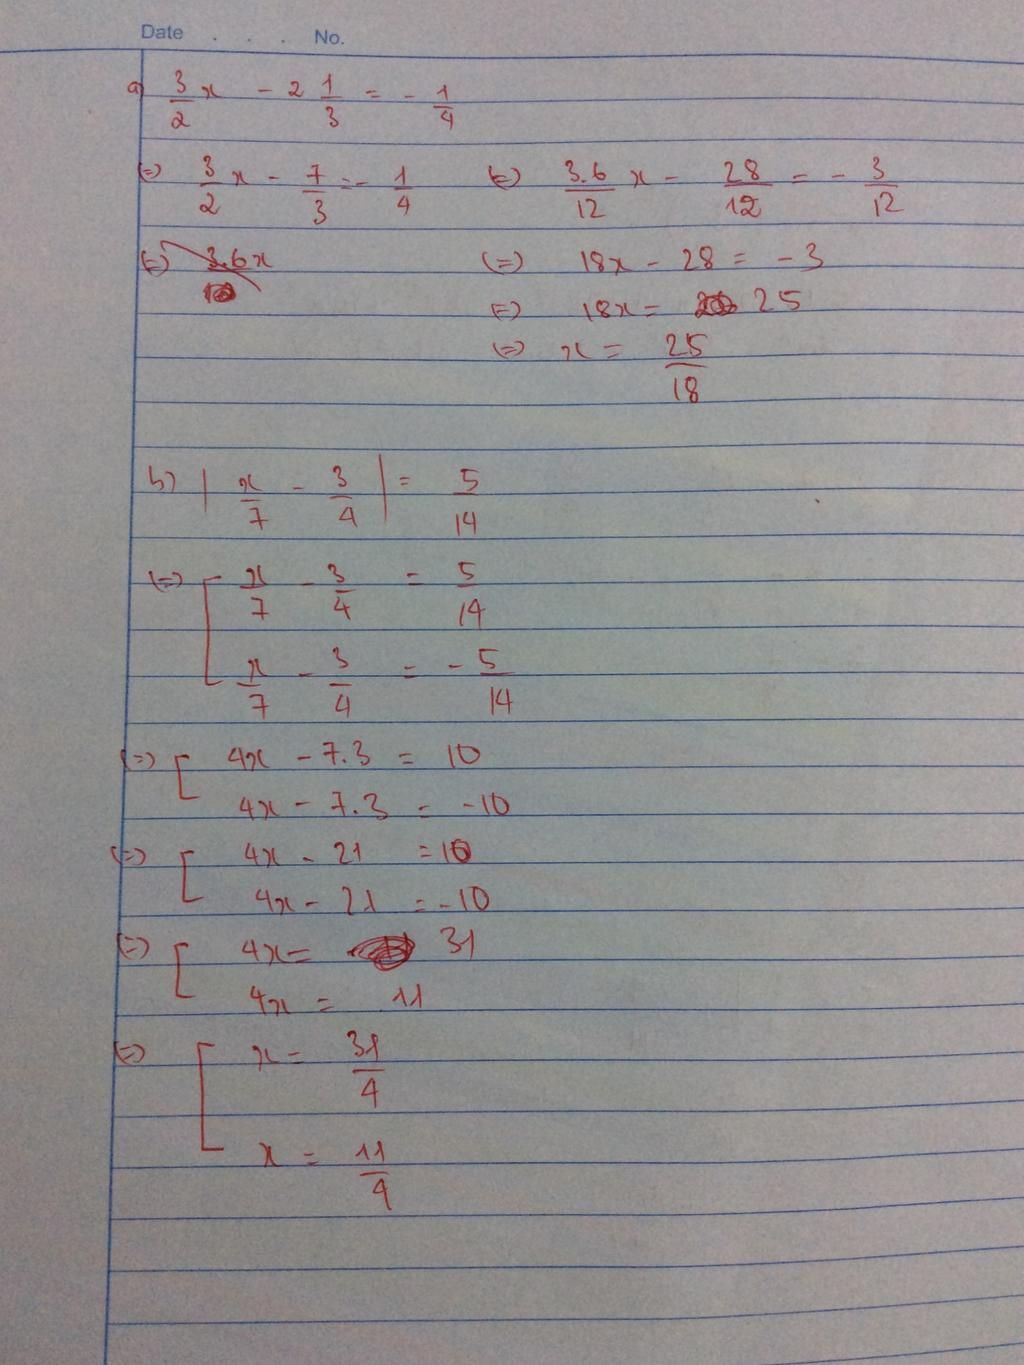 Date . . . No.
a) 3/2 x - 2 1/3 = - 1/4
(=) 3/2 x - 7/3 = - 1/4 (=) 3.6/12 x - 28/12 = - 3/12
(=) 3.6x (=) 18x - 28 = -3
(=) 18x = 25
(=) x = 25/18
b) | x/7 - 3/4 | = 5/14
(=) [ x/7 - 3/4 = 5/14
x/7 - 3/4 = - 5/14
(=) [ 4x - 7.3 = 10
4x - 7.3 = -10
(=) [ 4x - 21 = 10
4x - 21 = -10
(=) [ 4x = 31
4x = 11
(=) [ x = 31/4
x = 11/4